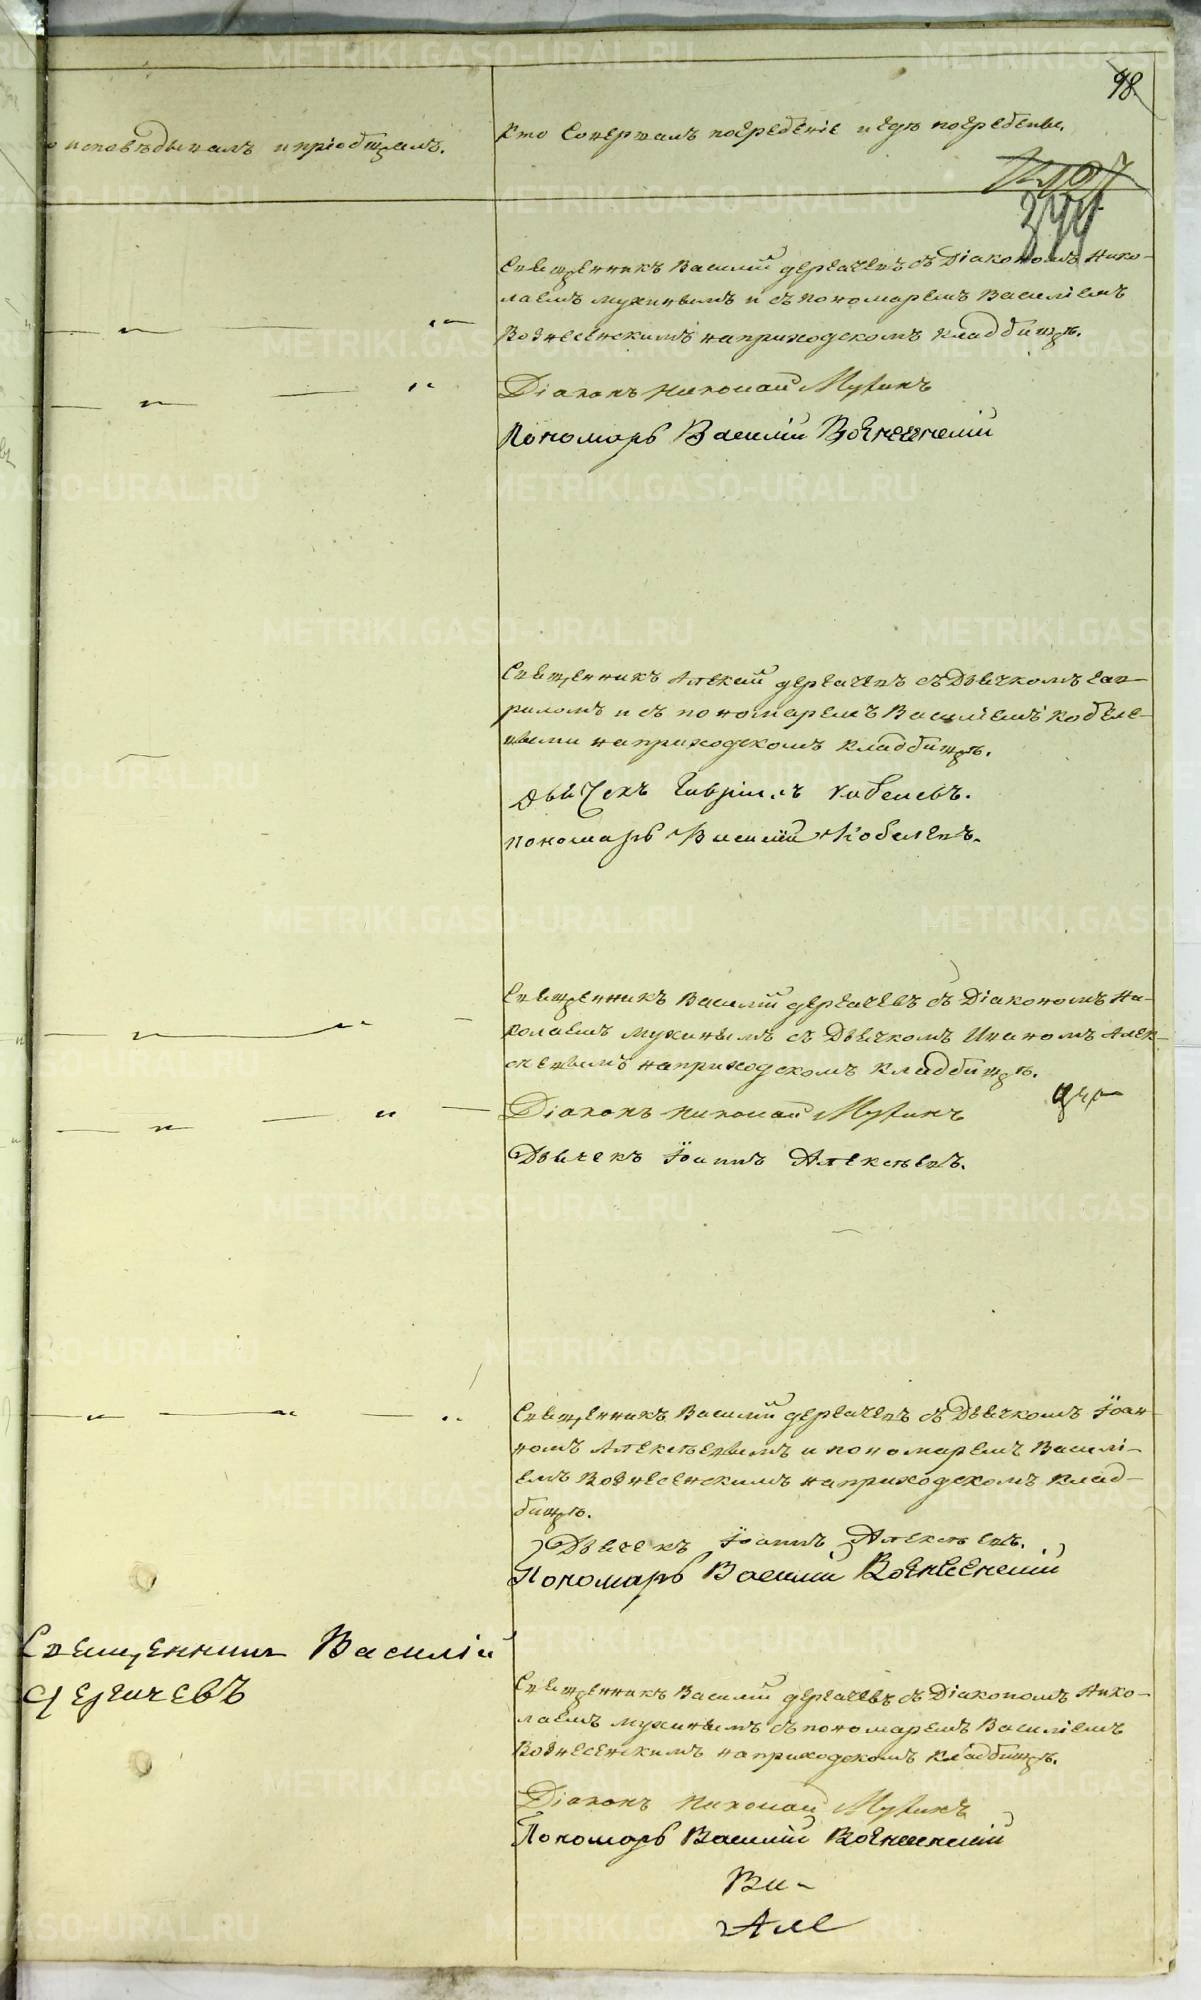 98
о исповѣдывалъ и пріобщалъ.
Кто совершалъ погребеніе и гдѣ погребены.
Священникъ Василій Дергачевъ съ Діакономъ Нико-
лаемъ Мухинымъ и съ пономаремъ Василіемъ
Вознесенскимъ на приходскомъ кладбищѣ.
Діаконъ Николай Мухинъ
Пономарь Василій Вознесенскій
Священникъ Алексій Дергачевъ съ Дьячкомъ Гав-
риломъ и съ пономаремъ Василіемъ Кобеле-
выми на приходскомъ кладбищѣ.
Дьячекъ Гаврилъ Кобелевъ.
пономарь Василій Кобелевъ.
Священникъ Василій Дергачевъ съ Діакономъ Ни-
колаемъ Мухинымъ съ Дьячкомъ Иваномъ Алек-
сѣевымъ на приходскомъ кладбищѣ.
Діаконъ Николай Мухинъ
Дьячекъ Іоаннъ Алексѣевъ.
Священникъ Василій Дергачевъ съ Дьячкомъ Іоан-
номъ Алексѣевымъ и пономаремъ Василі-
емъ Вознесенскимъ на приходскомъ клад-
бищѣ.
Дьячекъ Іоаннъ Алексѣевъ.
Пономарь Василій Вознесенскій
Священникъ Василій
Дергачевъ
Священникъ Василій Дергачевъ съ Діакономъ Нико-
лаемъ Мухинымъ съ пономаремъ Василіемъ
Вознесенскимъ на приходскомъ кладбищѣ.
Діаконъ Николай Мухинъ
Пономарь Василій Вознесенскій
Ва-
Але
METRIKI.GASO-URAL.RU